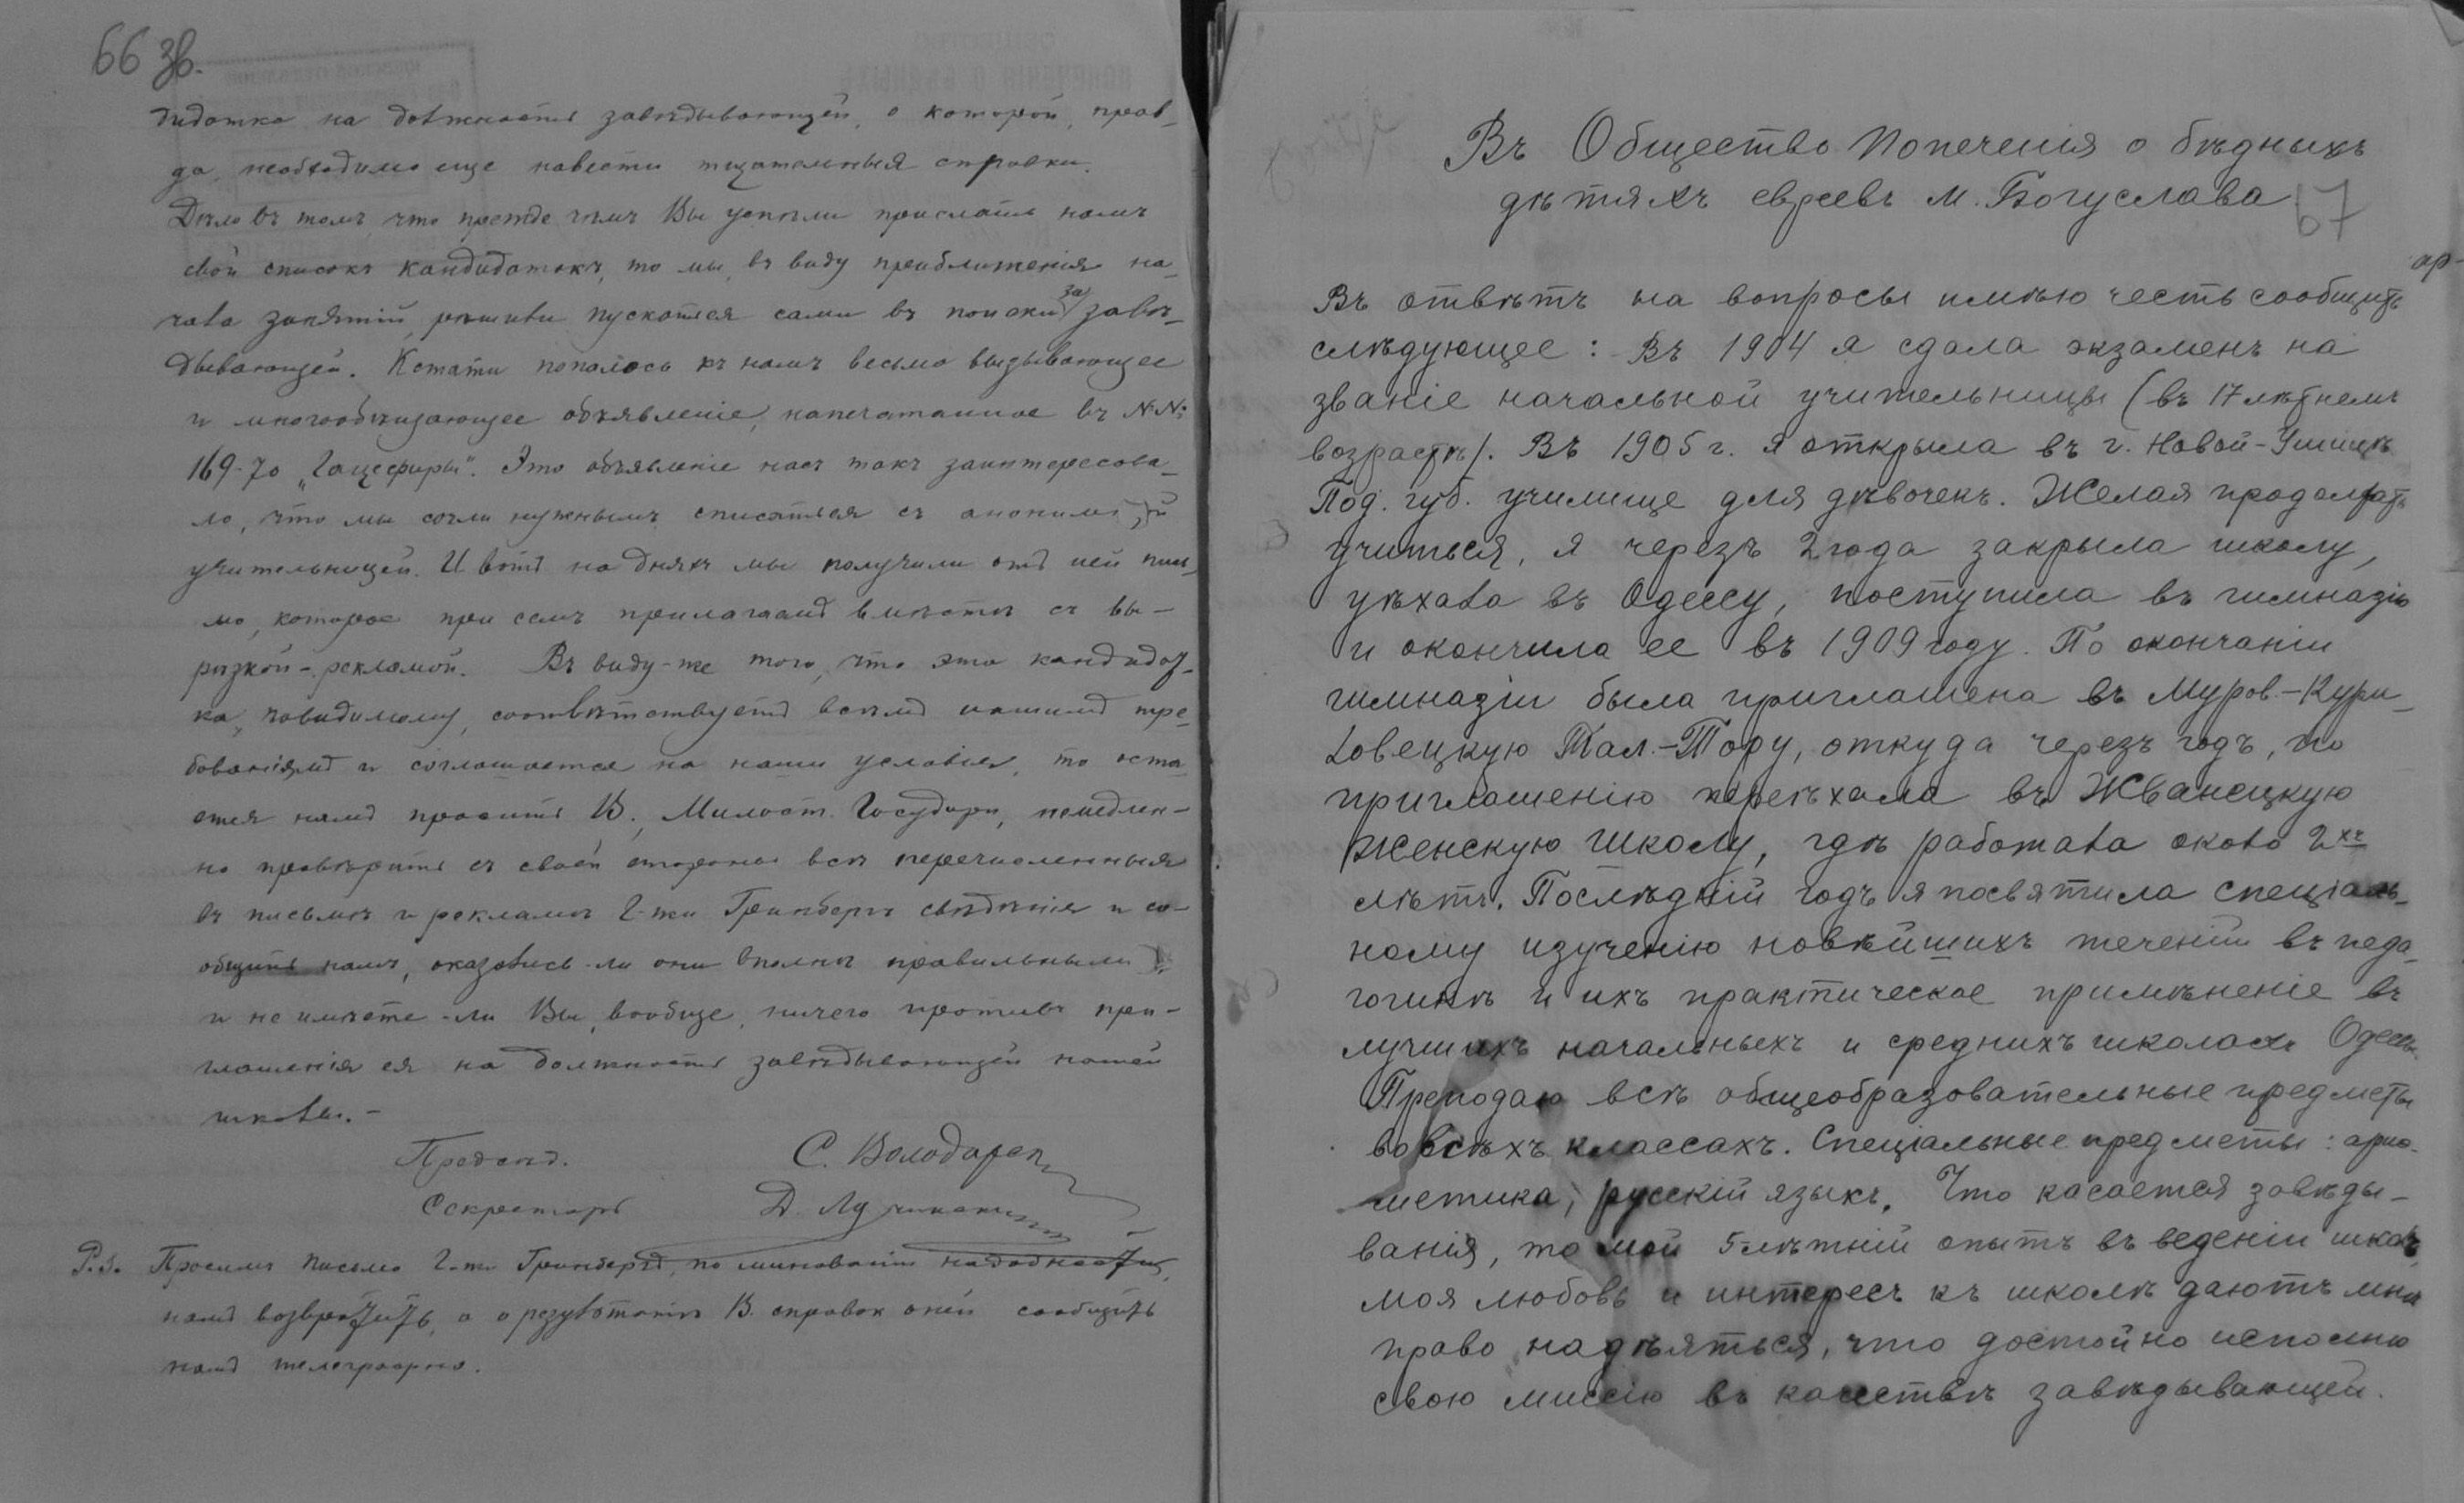 66 зв.
дидатка на должность завѣдывающей, о которой, прав-
да, необходимо еще навести тщательныя справки.
Дѣло въ томъ, что прежде чѣмъ Вы успѣли прислать намъ
свой списокъ кандидатокъ, то мы, въ виду приближенія на-
чала занятій, рѣшили пускаться сами въ поиски за завѣ-
дывающей. Кстати попалось къ намъ весьма вызывающее
и многообѣщающее объявленіе, напечатанное въ №№
169-70 „Гацефиры". Это объявленіе насъ такъ заинтересова-
ло, что мы сочли нужнымъ списаться съ анонимн.
учительницей. И вотъ на дняхъ мы получили отъ ней пись-
мо, которое при семъ прилагаемъ вмѣстѣ съ вы-
рѣзкой-рекламой. Въ виду-же того, что эта кандидат-
ка, повидимому, соотвѣтствуетъ всѣмъ нашимъ тре-
бованіямъ и соглашается на наши условія, то оста-
ется намъ просить В., Милост. Государи, немедлен-
но провѣрить съ своей стороны всѣ перечисленныя
въ письмѣ и рекламѣ Г-жи Гринбергъ свѣдѣнія и со-
общить намъ, оказались-ли они вполнѣ правильными
и не имѣете-ли Вы, вообще, ничего противъ при-
глашенія ея на должность завѣдывающей нашей
школы.-
Предсѣд. С. Володарск
Секретарь Д.
P.S. Просимъ письмо Г-жи Гринбергъ, по минованіи надобности,
намъ возвратить, а о результатѣ В. справок оней сообщить
намъ телеграфно.
67
Въ Общество Попеченія о бѣдныхъ
дѣтяхъ евреевъ м. Богуслава
Въ отвѣтъ на вопросы имѣю честь сообщить
слѣдующее: Въ 1904 я сдала экзаменъ на
званіе начальной учительницы (въ 17 лѣтнемъ
возрастѣ). Въ 1905 г. я открыла въ г. Новой-Ушицѣ
Под. губ. училище для дѣвочекъ. Желая продолжать
учиться, я черезъ 2 года закрыла школу,
уѣхала въ Одессу, поступила въ гимназію
и окончила ее въ 1909 году. По окончаніи
гимназіи была приглашена въ Муров.-Кури-
ловецкую Тал.-Тору, откуда черезъ годъ, по
приглашенію переѣхала въ Жванецкую
Женскую Школу, гдѣ работала около 2хъ
лѣтъ. Послѣдній годъ я посвятила спеціаль-
ному изученію новѣйшихъ теченій въ педа-
гогикѣ и ихъ практическое примѣненіе въ
лучшихъ начальныхъ и среднихъ школахъ Одессы.
Преподаю всѣ общеобразовательные предметы
во всѣхъ классахъ. Спеціальные предметы: ариө-
метика, русскій языкъ. Что касается завѣды-
ванія, то мой 5-лѣтній опытъ въ веденіи школъ,
моя любовь и интересъ къ школѣ даютъ мнѣ
право надѣяться, что достойно исполню
свою миссію въ качествѣ завѣдывающей.